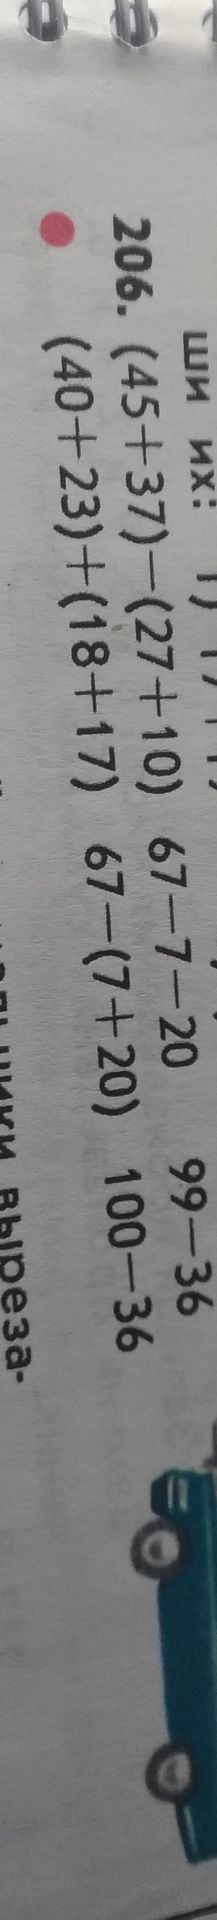 ши их: 1)
206. (45+37)−(27+10) 67−7−20 99−36
(40+23)+(18+17) 67−(7+20) 100−36
выреза-